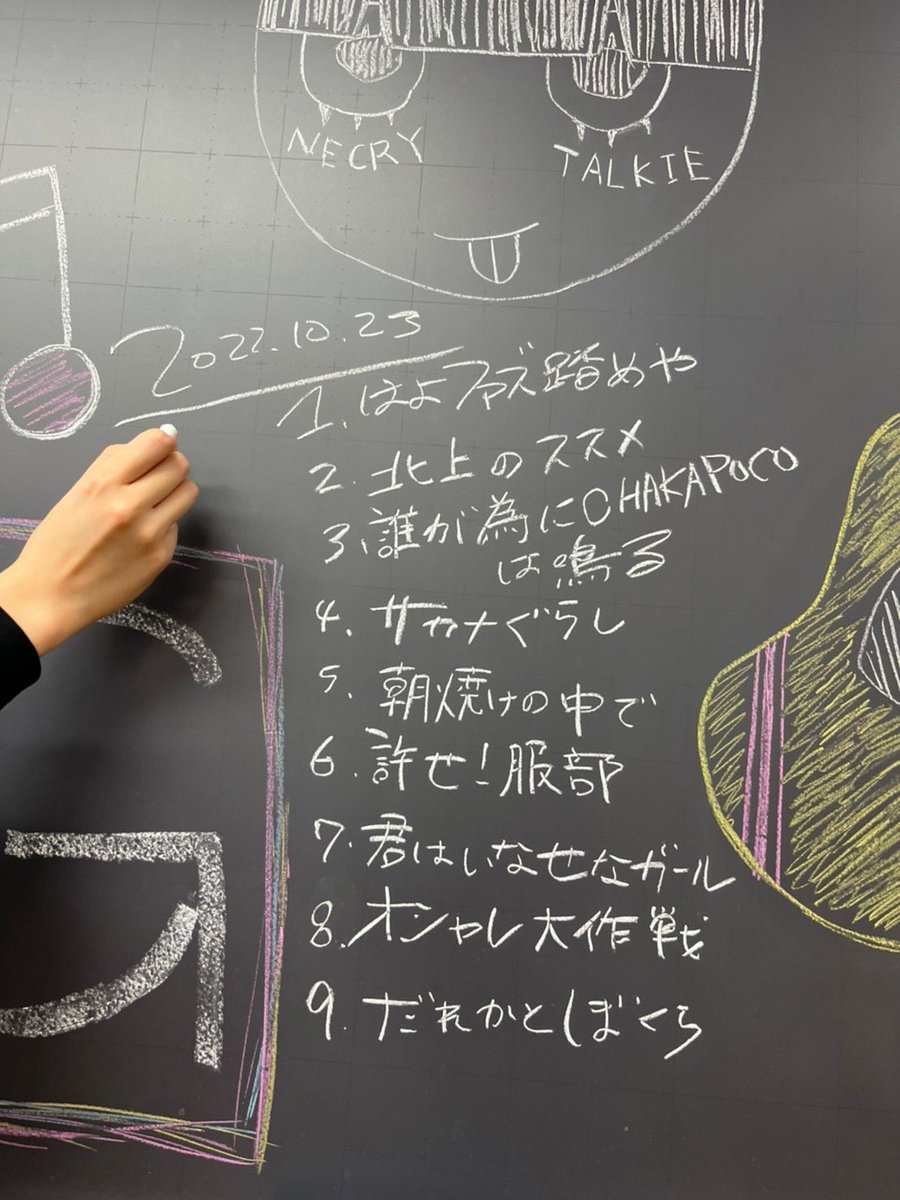 NECRY TALKIE
2022.10.23
1. はよファズ踏めや
2. 北上のススメ
3. 誰が為にCHAKAPOCO
は鳴る
4. サカナぐらし
5. 朝焼けの中で
6. 許せ!服部
7. 君はいなせなガール
8. オシャレ大作戦
9. だれかとぼくら